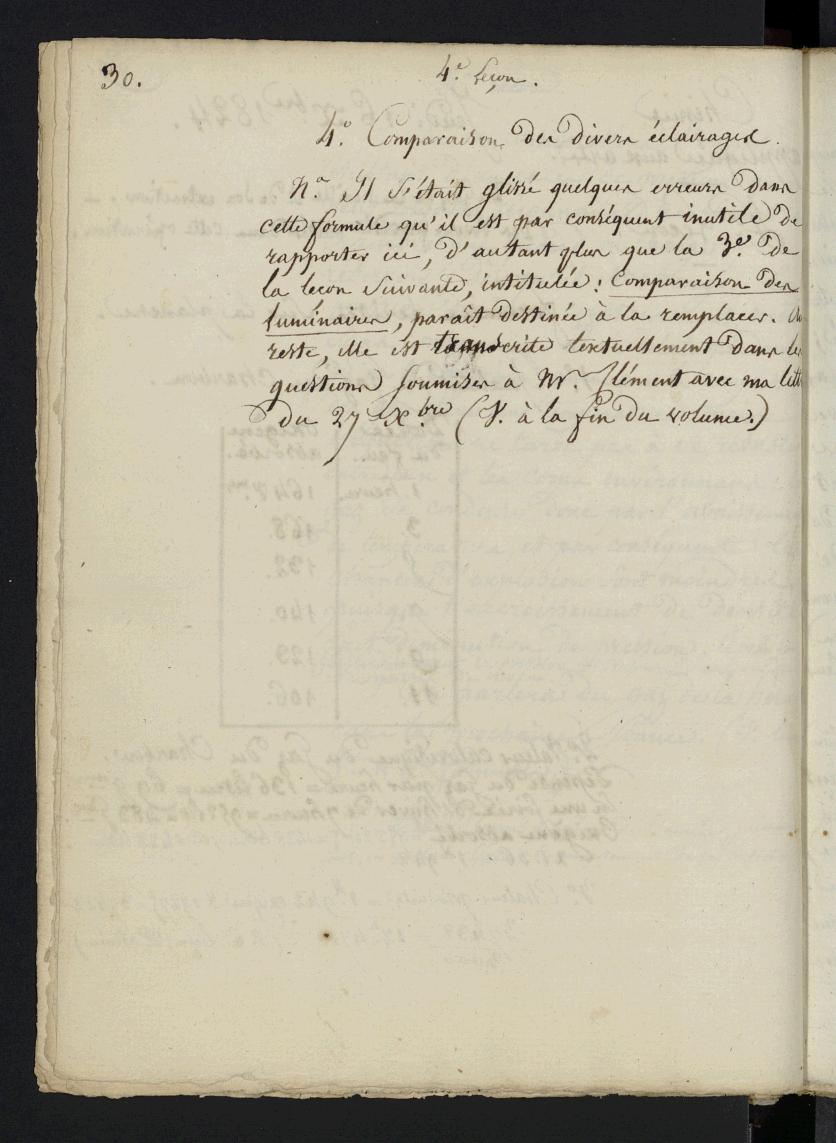 30.
4.e Leçon.
4.o Comparaison des divers éclairages.
N.a Il s'était glissé quelques erreurs dans
cette formule qu'il est par conséquent inutile de
rapporter ici, d'autant plus que la 3.e de
la leçon suivante, intitulée: Comparaison des
luminaires, paraît destinée à la remplacer. Au
reste, elle est transcrite textuellement dans les
questions soumises à Mr. Clément avec ma lett
du 27 Xbre (V. à la fin du volume.)